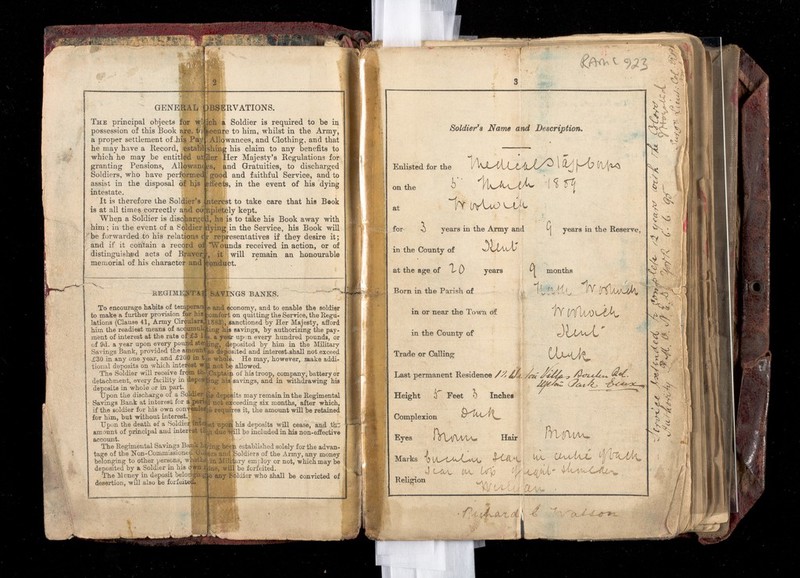 2
GENERAL OBSERVATIONS.
THE principal objects for which a Soldier is required to be in
possession of this Book are, to secure to him, whilst in the Army,
a proper settlement of his Pay, Allowances, and Clothing, and that
he may have a Record, establishing his claim to any benefits to
which he may be entitled under Her Majesty's Regulations for
granting Pensions, Allowances, and Gratuities, to discharged
Soldiers, who have performed good and faithful Service, and to
assist in the disposal of his effects, in the event of his dying
intestate.
It is therefore the Soldier's interest to take care that his Book
is at all times correctly and completely kept.
When a Soldier is discharged, he is to take his Book away with
him; in the event of a Soldier dying in the Service, his Book will
be forwarded to his relations or representatives if they desire it;
and if it contain a record of Wounds received in action, or of
distinguished acts of Bravery, it will remain an honourable
memorial of his character and conduct.
REGIMENTAL SAVINGS BANKS.
To encourage habits of temperance and economy, and to enable the soldier
to make a further provision for his comfort on quitting the Service, the Regu-
lations (Clause 41, Army Circulars, sanctioned by Her Majesty, afford
him the readiest means of accumulating his savings, by authorizing the pay-
ment of interest at the rate of a year upon every hundred pounds, or
of 9d. a year upon every pound sterling, deposited by him in the Military
Savings Bank, provided the amount so deposited and interest shall not exceed
£30 in any one year, and £200 in the whole. He may, however, make addi-
tional deposits on which interest will not be allowed.
The Soldier will receive from the Captain of his troop, company, battery or
detachment, every facility in depositing his savings, and in withdrawing his
deposits in whole or in part.
Upon the discharge of a Soldier his deposits may remain in the Regimental
Savings Bank at interest for a period not exceeding six months, after which,
if the soldier for his own convenience requires it, the amount will be retained
for him, but without interest.
Upon the death of a Soldier interest upon his deposits will cease, and the
amount of principal and interest then due will be included in his non-effective
account.
The Regimental Savings Bank having been established solely for the advan-
tage of the Non-Commissioned Officers and Soldiers of the Army, any money
belonging to other persons, whether in Military employ or not, which may be
deposited by a Soldier in his own name, will be forfeited.
The Money in deposit belonging to any Soldier who shall be convicted of
desertion, will also be forfeited.
RAMC 923
3
Soldier's Name and Description.
Enlisted for the Medical Staff Corps
on the 5 March 1889
at Woolwich
for 3 years in the Army and 9 years in the Reserve,
in the County of Kent
at the age of 20 years 9 months
Born in the Parish of Woolwich
in or near the Town of Woolwich
in the County of Kent
Trade or Calling Clerk
Last permanent Residence Villa, Borden Rd.
Upton Park Essex
Height 5 Feet 3 Inches
Complexion Dark
Eyes Brown Hair Brown
Marks scar in centre of back
Scar on top of right shoulder
Religion Wesleyan
Richard C Watson
Service extended to complete 2 years with the Colors